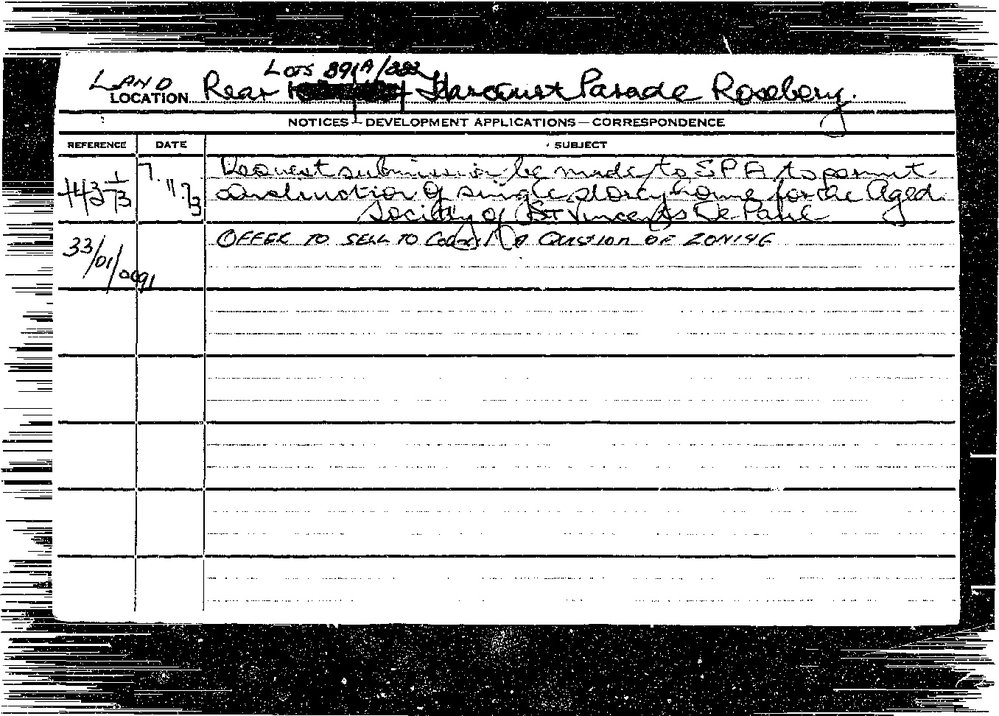 LAND Lots 391A/
LOCATION Rear Harcourt Parade Rosebery.
NOTICES – DEVELOPMENT APPLICATIONS – CORRESPONDENCE
REFERENCE DATE SUBJECT
Request submission be made to S.P.A to permit
7.11.73 construction of single storey home for the Aged.
Society of St Vincents De Paul
33/01/0091 OFFER TO SELL TO QUESTION OF ZONING